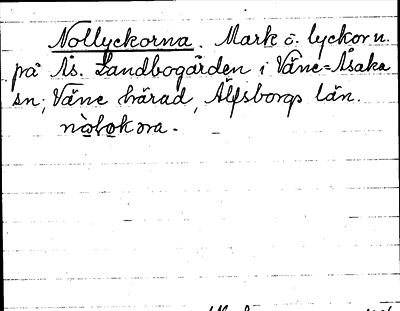 Nollyckorna. Mark o. lyckorn.
på Ås. Landbogården i Väne-Åsaka
sn, Väne härad, Älfsborgs län.